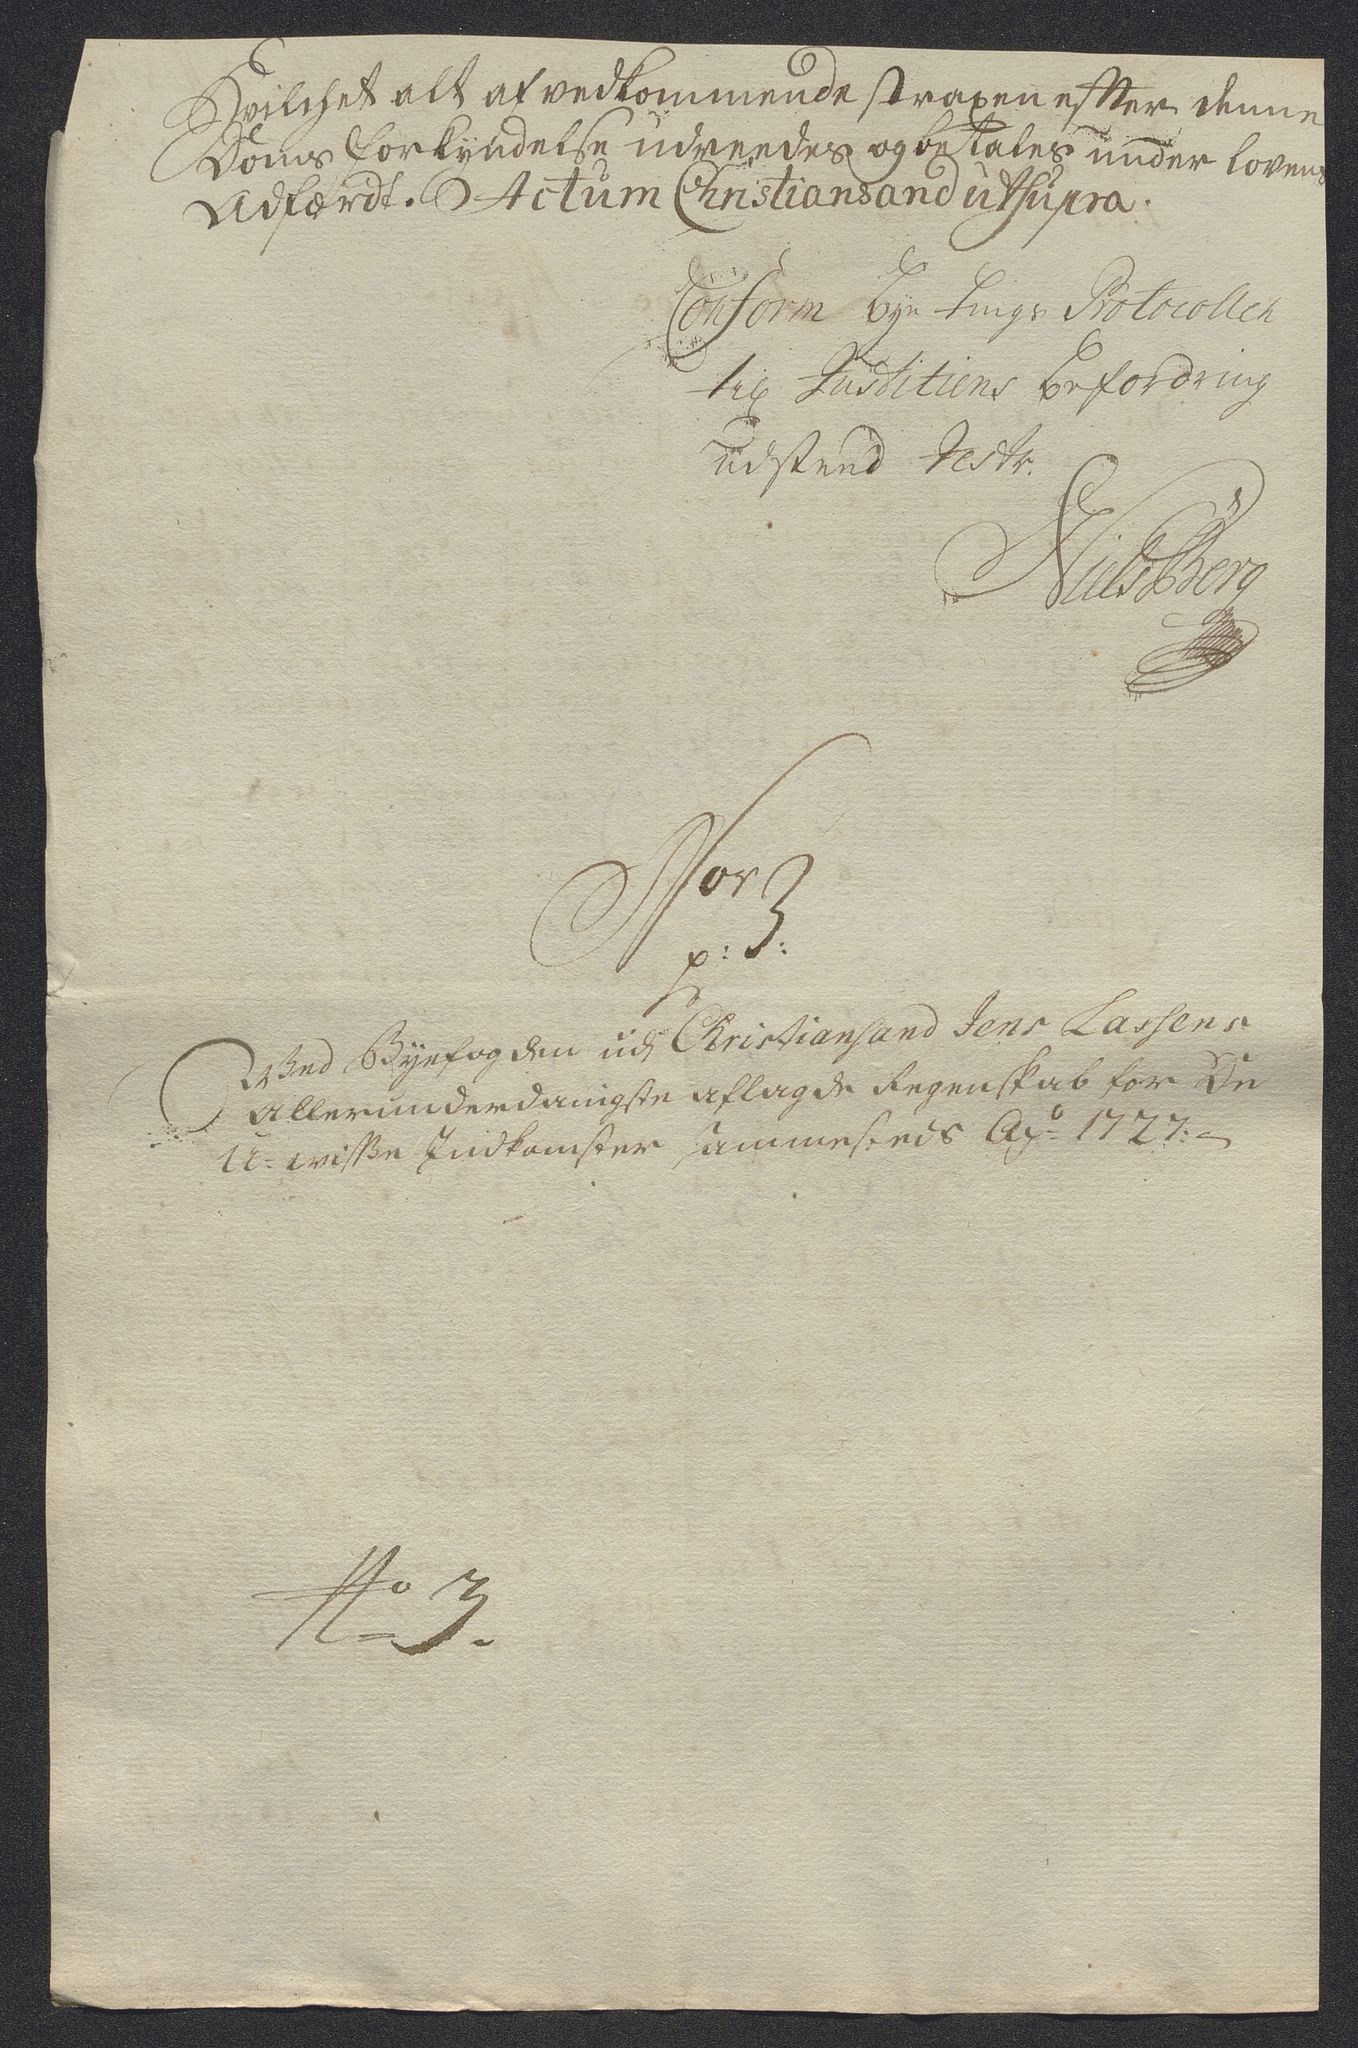 Hvilchet alt af vedkommende straxen efter denne
Doms forkyndelse udreedes og betales under lovens
Adfærdt. Actum Christiansand ut supra.
Conform bye tings Protocollen
til Justitiens befordring
udstæd Test.
Niels Berg
Nor 3
p: 3:
Ved Byefogden udj Christiansand Jens Lassens
allerunderdanigste aflagde Regenskab for De
U-wisse Indkomster sammesteds Ao 1727.
No 3.